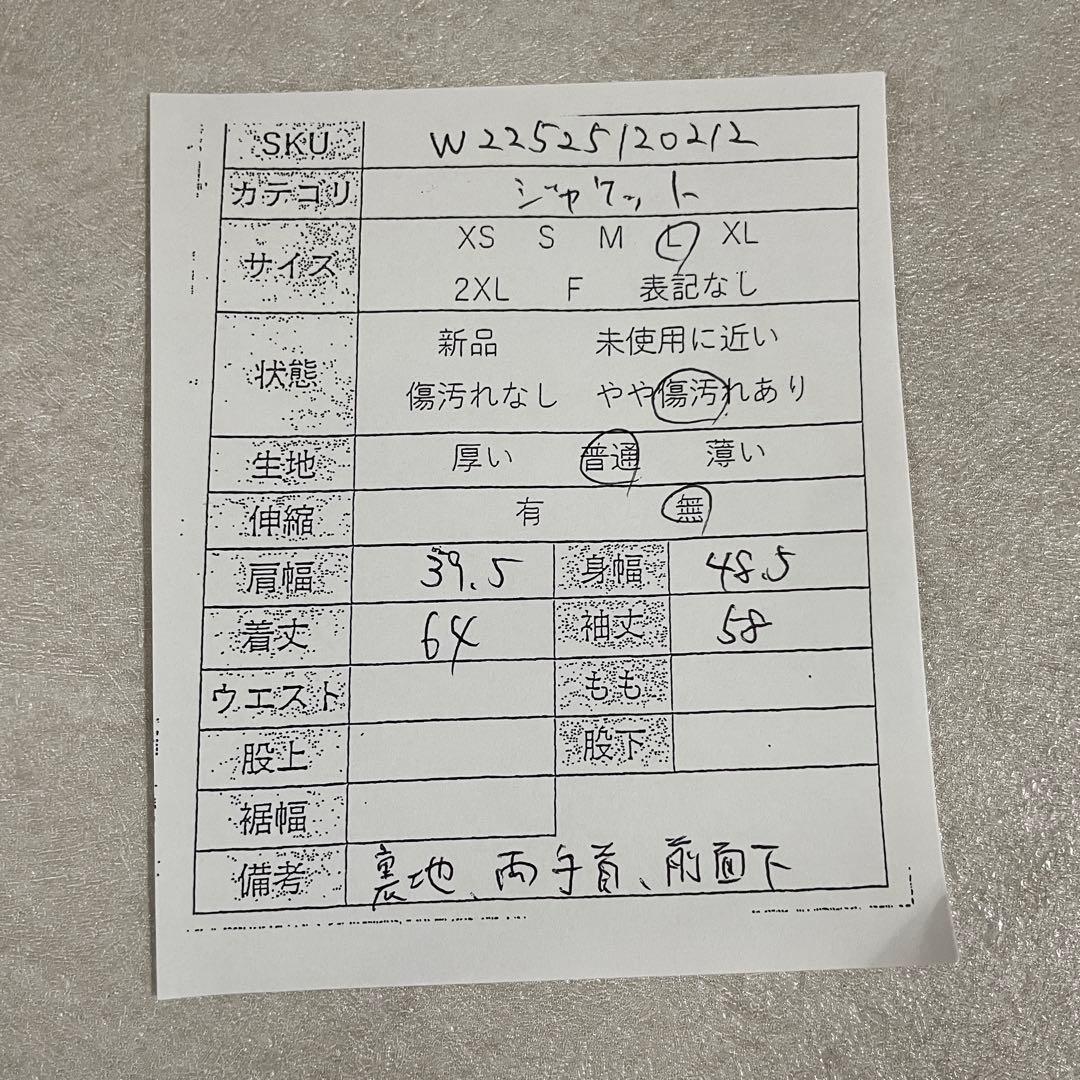 SKU W22525120212
カテゴリ ジャケット
サイズ XS S M L XL
2XL F 表記なし
状態 新品 未使用に近い
傷汚れなし やや傷汚れあり
生地 厚い 普通 薄い
伸縮 有 無
肩幅 39.5 身幅 48.5
着丈 64 袖丈 58
ウエスト もも
股上 股下
裾幅
備考 裏地、両手首、前面下